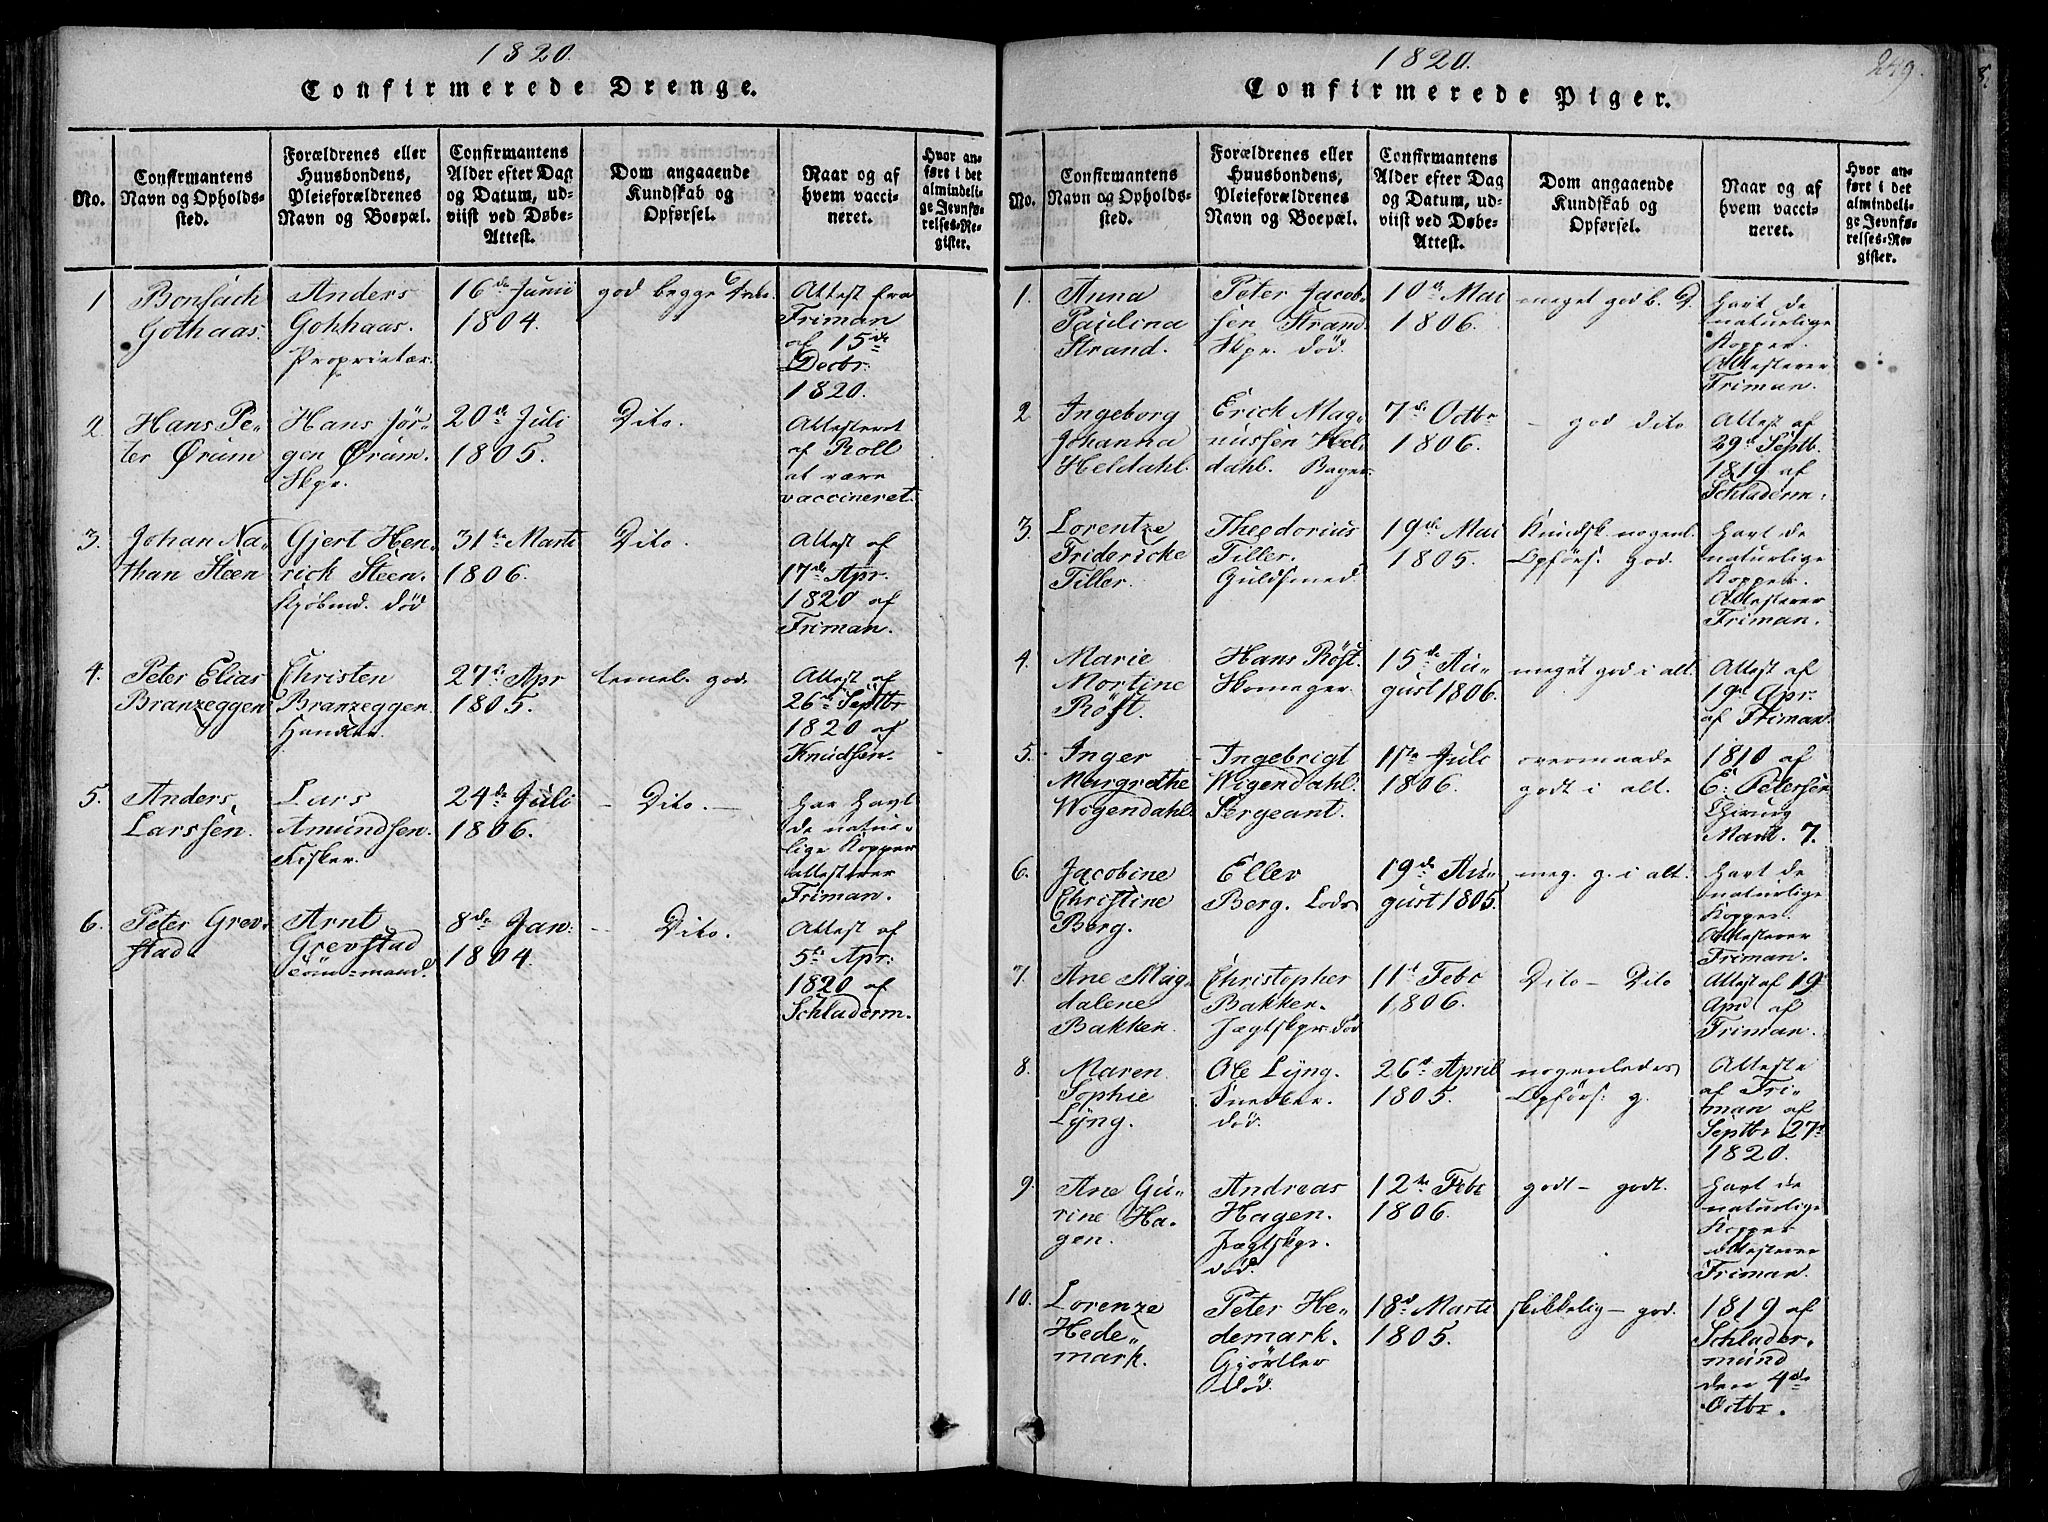 1820.
Confirmerede Drenge.
No.
Confirmantens
Navn og Opholds-
sted.
Forældrenes eller
Huusbondens,
Pleieforældrenes
Navn og Boepæl.
Confirmantens
Alder efter Dag
og Datum, ud-
viist ved Døbe-
Attest.
Dom angaaende
Kundskab og
Opførsel.
Naar og af
hvem vacci-
neret.
Hvor an-
ført i det
almindeli-
ge Jevnfø-
relses-Re-
gister.
1
Gothaas.
Anders
Gohhaas.
Proprietær.
16de Junii
1804.
god begge Dele.
Attest fra
Friman
af 15de
Decbr.
1820.
2.
Hans Pe-
ter Ørum
Hans Jør-
gen Ørum.
Skpr.
20de Juli
1805.
Dito.
Attesteret
af Roll
at være
vaccineret.
3.
Johan Na-
than Steen
Gjert Hen-
rick Steen.
Kjøbmd. død
31te Marti
1806.
Dito.
Attest af
17de Apr.
1820 af
Friman.
4.
Peter Elias
Branzeggen
Christen
Branzeggen.
27de Apr
1805.
temel. god.
Attest af
26de Septbr
1820 af
Knudsen.
5.
Anders
Larssen.
Lars
Amundsen.
Fisker.
24de Juli
1806.
- Dito. -
har havt
de natur-
lige Kopper
attesterer
Friman.
6.
Peter Grev-
stad.
Arnt
Grevstad
Tømmermand.
8de Jan:
1804.
- Dito.
Attest af
5te Apr:
1820 af
Schladerm.
1820.
249.
Confirmerede Piger.
No.
Confirmantens
Navn og Opholds-
sted.
Forældrenes eller
Huusbondens,
Pleieforældrenes
Navn og Boepæl.
Confirmantens
Alder efter Dag
og Datum, ud-
viist ved Døbe-
Attest.
Dom angaaende
Kundskab og
Opførsel.
Naar og af
hvem vacci-
neret.
Hvor an-
ført i det
almindeli-
ge Jevnfø-
relses-Re-
gister.
1.
Anna
Paulina
Strand.
Peter Jacob-
sen Strand
Skpr. død.
10de Mai
1806.
meget god b. D.
havt de
naturlige
Kopper.
Attesterer
Friman.
2
Ingeborg
Johanna
Heldahl.
Erick Mag-
nussen Hel-
dahl. Bager.
7de Octbr
1806.
- god Dito
Attest af
29de Septb.
1819 af
Schladerm.
3.
Lorentze
Fridericke
Tiller.
Theodorius
Tiller.
Guldsmed.
19de Mai
1805.
Kundsk. nogenl.
Opførs: god.
havt de
naturlige
Kopper.
Attesterer
Friman.
4.
Marie
Mortine
Röst.
Hans Röst.
Skomager.
15de Au-
gust 1806.
meget god i alt.
Attest af
19de Apr.
af Friman.
5.
Inger
Margrethe
Wigendahl.
Ingebrigt
Wigendahl.
Sergeant.
17de Juli
1806.
overmaade
godt i alt.
1810 af
E. Petersen
Chirurg
Mart. 7.
6.
Jacobine
Christine
Berg.
Ellev
Berg. Lods
19de Au-
gust 1805.
meg. g. i alt.
havt de
naturlige
Kopper.
Attesterer
Friman.
7.
Ane Mag-
dalene
Bakken.
Christopher
Bakken.
Jægtskpr. død
11te Febr
1806.
Dito - Dito
Attest af 19
Apr. af
Friman.
8.
Maren
Sophie
Lÿng.
Ole Lÿng.
Snedker.
død.
26de April
1805.
nogenledes
Opførs: g.
Atteste
af Fri-
man af
Septbr 27de
1820.
9.
Ane Gu-
rine Ha-
gen.
Andreas
Hagen.
Jægtskpr.
død.
12te Febr
1806.
godt - godt.
havt de
naturlige
Kopper
attesterer
Friman.
10.
Lorenze
Hede-
mark.
Peter He-
demark.
Gjörtler
død.
18de Marti
1805.
skikkelig - god.
1819 af
Schlader-
mund
den 4de
Octbr.